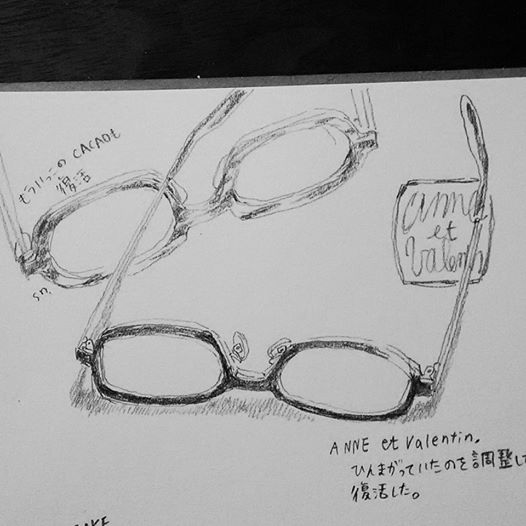 もういっこの
復活
anne
et
Valentin
ANNE et Valentin,
ひんまがっていたのを調整し
復活した。